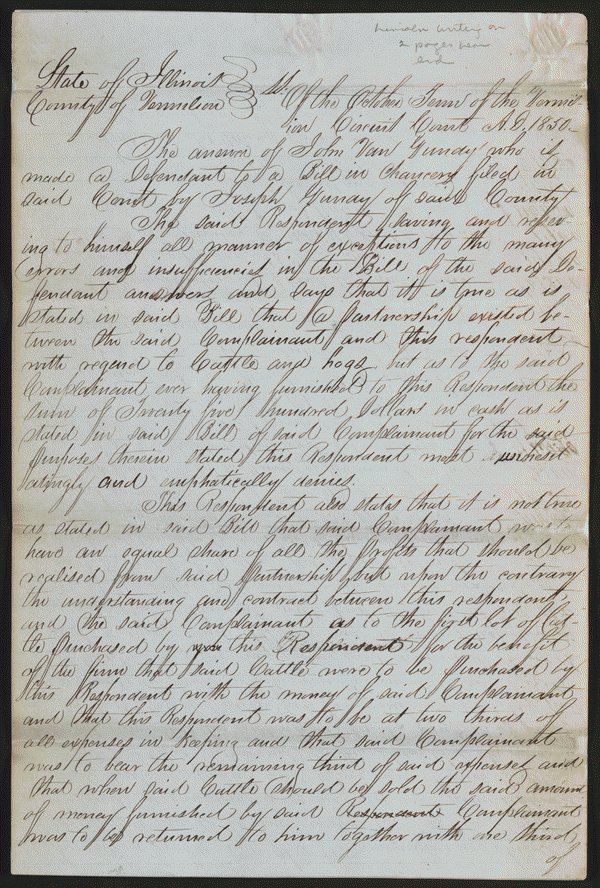 Lincoln writing on
2 pages near
end
State of Illinois
County of Vermilion
ss. Of the October Term of the Vermil-
ion Circuit Court A.D. 1850-
The answer of John Van Gundy who is
made a Defendant to a Bill in Chancery filed in
said Court by Joseph Gundy of said County
The said Respondent saving and reserv-
ing to himself all manner of exceptions to the many
errors and insufficiencies in the Bill of the said De-
fendant answers and says that it is true as is
stated in said Bill that a partnership existed be-
tween the said Complainant and this respondent
with regard to Cattle and hogs but as to the said
Complainant ever having furnished to this Respondent the
sum of Twenty five hundred Dollars in cash as is
stated in said Bill of said Complainant for the said
purposes therein stated this Respondent most unhesit
atingly and emphatically denies.
This Respondent also states that it is not true
as stated in said Bill that said Complainant was to
have an equal share of all the profits that should be
realised from said partnership, but upon the contrary
the understanding and contract between this respondent,
and the said Complainant as to the first lot of Cat-
tle purchased by this Respondent for the benefit
of the firm that said Cattle were to be purchased by
this Respondent with the money of said Complainant
and that this Respondent was to be at two thirds of
all expenses in keeping and that said Complainant
was to bear the remaining third of said expenses and
that when said Cattle should be sold the said amount
of money furnished by said Respondent Complainant
was to be returned to him together with one third
of